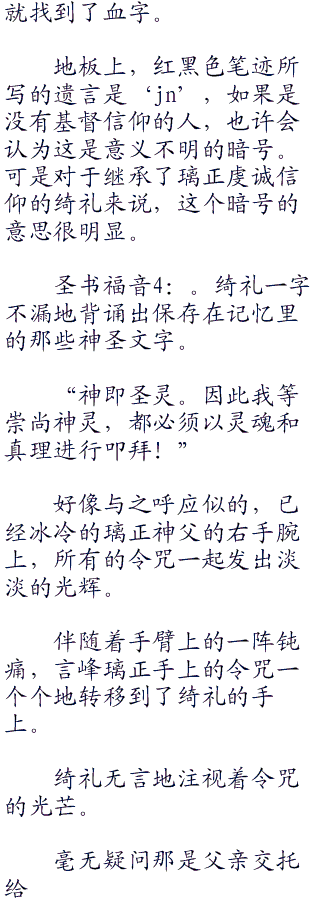 就找到了血字。
地板上，红黑色笔迹所
写的遗言是‘jn’，如果是
没有基督信仰的人，也许会
认为这是意义不明的暗号。
可是对于继承了璃正虔诚信
仰的绮礼来说，这个暗号的
意思很明显。
圣书福音4：。绮礼一字
不漏地背诵出保存在记忆里
的那些神圣文字。
“神即圣灵。因此我等
崇尚神灵，都必须以灵魂和
真理进行叩拜！”
好像与之呼应似的，已
经冰冷的璃正神父的右手腕
上，所有的令咒一起发出淡
淡的光辉。
伴随着手臂上的一阵钝
痛，言峰璃正手上的令咒一
个个地转移到了绮礼的手
上。
绮礼无言地注视着令咒
的光芒。
毫无疑问那是父亲交托
给